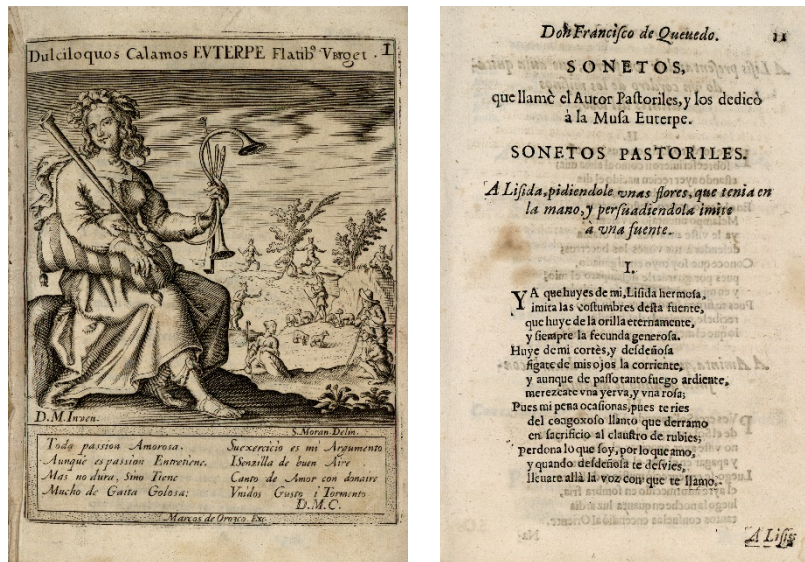 Dulciloquos Calamos EVTERPE Flatibꝰ Vrget. 1
D.M. Inven.
S. Moran Delin.
Toda passion Amorosa.
Aunque es passion Entretiene.
Mas no dura, Sino Tiene
Mucho de Gaita Golosa:
Su exercicio es mi Argumento
I Senzilla de buen Aire
Canto de Amor con donaire
Vnidos Gusto i Tormento
D.M.C.
Marcos de Orozco Exc.
Don Francisco de Queuedo. 11
SONETOS,
que llamè el Autor Pastoriles, y los dedicò
à la Musa Euterpe.
SONETOS PASTORILES.
A Lisida, pidiendole vnas flores, que tenia en
la mano, y persuadiendola imite
à vna fuente.
I.
YA que huyes de mi, Lisida hermosa,
imita las costumbres desta fuente,
que huye de la orilla eternamente,
y siempre la fecunda generosa.
Huye de mi cortès, y desdeñosa
sigate de mis ojos la corriente,
y aunque de passo tanto fuego ardiente,
merezcate vna yerva, y vna rosa;
Pues mi pena ocasionas, pues te ries
del congoxoso llanto que derramo
en sacrificio al claustro de rubies;
Perdona lo que soy, por lo que amo,
y quando desdeñosa te desvies,
lleuate allà la voz con que te llamo.
A Lisis